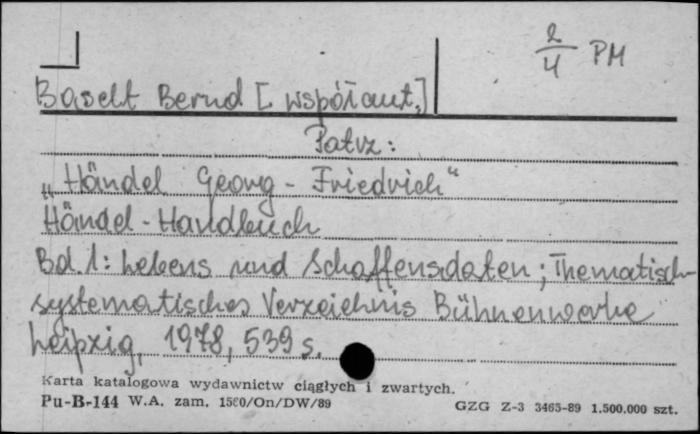 2/4 PM
Baselt Bernd [współaut.]
Patrz:
„Händel Georg - Friedrich“
Händel - Handbuch
Bd. 1: Lebens und Schaffensdaten; Thematisch-
systematisches Verzeichnis Bühnenwerke
Leipzig, 1978, 539 s.
Karta katalogowa wydawnictw ciągłych i zwartych.
Pu-B-144 W.A. zam. 1560/On/DW/89 GZG Z-3 3465-89 1.500.000 szt.